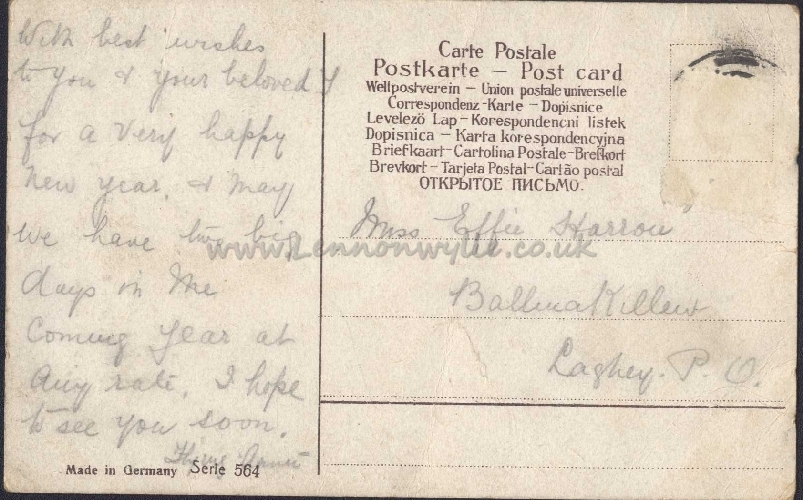 With best wishes
to you & your beloved
for a very happy
New year. & may
we have two big
days in the
Coming year at
Any rate. I hope
to see you soon.
Made in Germany Serie 564
Carte Postale
Postkarte – Post card
Weltpostverein – Union postale universelle
Correspondenz-Karte – Dopisnice
Levelező Lap – Korespondencni listek
Dopisnica – Karta korespondencyjna
Briefkaart – Cartolina Postale – Brefkort
Brevkort – Tarjeta Postal – Cartão postal
ОТКРЫТОЕ ПИСЬМО.
Miss Effie
www.Lennonwylie.co.uk
Laghey. P. O.